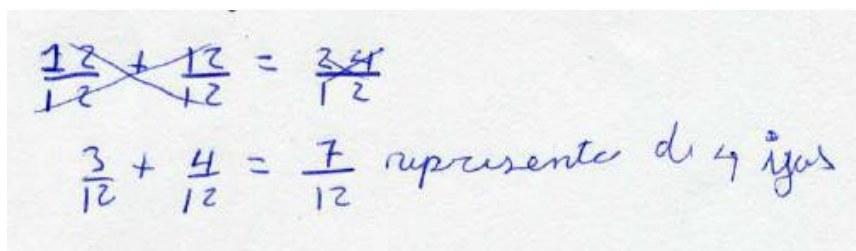 12/12 + 12/12 = 24/12
3/12 + 4/12 = 7/12 represente de